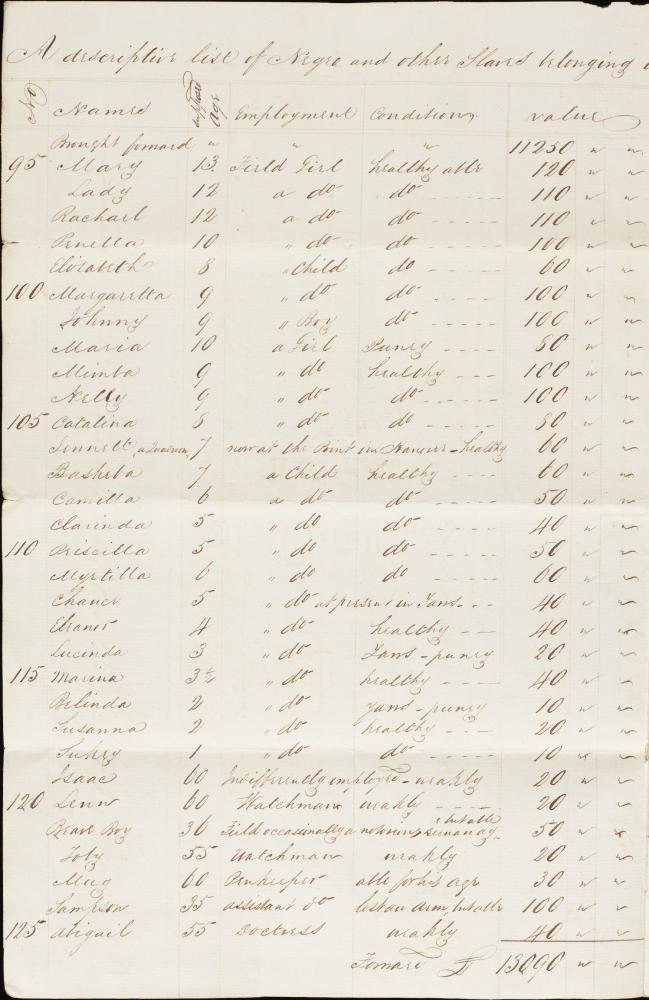 A descriptive list of Negro and other Slaves belonging
No Names supposed age Employment Condition value
Brought forward " " " 11250 " "
95 Mary 13 Field Girl healthy able 120 " "
Lady 12 a do do 110 " "
Rachael 12 a do do 110 " "
Penella 10 " do do 100 " "
Elizabeth 8 " Child do 60 " "
100 Margaretta 9 " do do 100 " "
Johnny 9 " Boy do 100 " "
Maria 10 a Girl Puney 80 " "
Mimba 9 " do healthy 100 " "
Nelly 9 " do do 100 " "
105 Catalina 8 " do do 80 " "
Jennett, a Quadroon, 7 now at the Point in Hanover - healthy 60 " "
Basheba 7 a Child healthy 60 " "
Camilla 6 a do do 50 " "
Clarinda 5 " do do 40 " "
110 Priscilla 5 " do do 50 " "
Myrtilla 6 " do do 60 " "
Chance 5 " do at present in Yaws 40 " "
Eleanor 4 " do healthy 40 " "
Lucinda 3 " do Yaws - puney 20 " "
115 Marina 3½ " do healthy 40 " "
Belinda 2 " do Yaws - puney 10 " "
Susanna 2 " do healthy 20 " "
Sukey 1 " do do 10 " "
Isaac 60 Indifferently employed - weakly 20 " "
120 Lenn 60 Watchman weakly 20 " "
Brave Boy 36 Field occasionally a notorious runaway, but able 50 " "
Toby 55 Watchman weakly 20 " "
Mug 60 Penkeeper able for his age 30 " "
Sampson 35 assistant do lost an arm, but able 100 " "
125 Abigail 55 Doctress weakly 40 " "
Forward £ 13090 " "